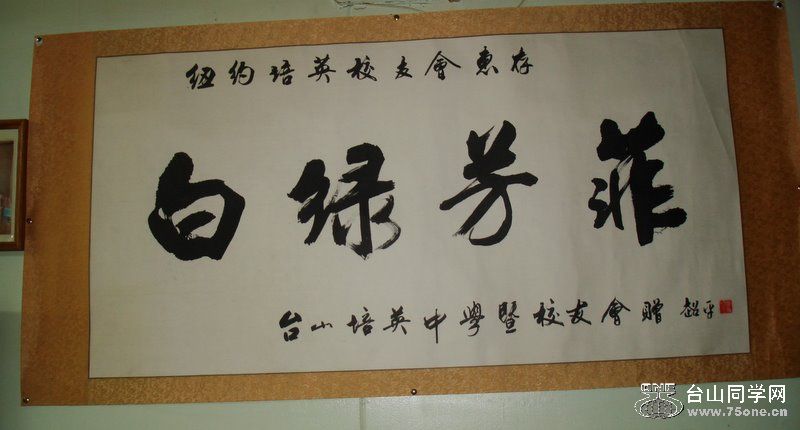 纽约培英校友會惠存
白绿芳菲
台山培英中學暨校友會贈 超平
ONE
台山同学网
www.75one.cn